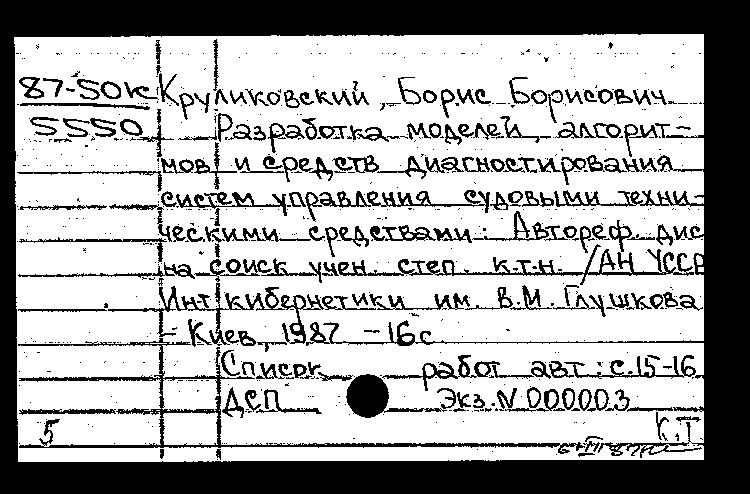 87-50к Круликовский, Борис Борисович
5550 Разработка моделей, алгорит-
мов и средств диагностирования
систем управления судовыми техни-
ческими средствами: Автореф. дис
на соиск учен. степ. к.т.н. /АН УССР
Инт кибернетики им. В.М. Глушкова
- Киев, 1987 - 16с
Список работ авт: с.15-16
ДСП Экз. N 000003
5 К.Т.